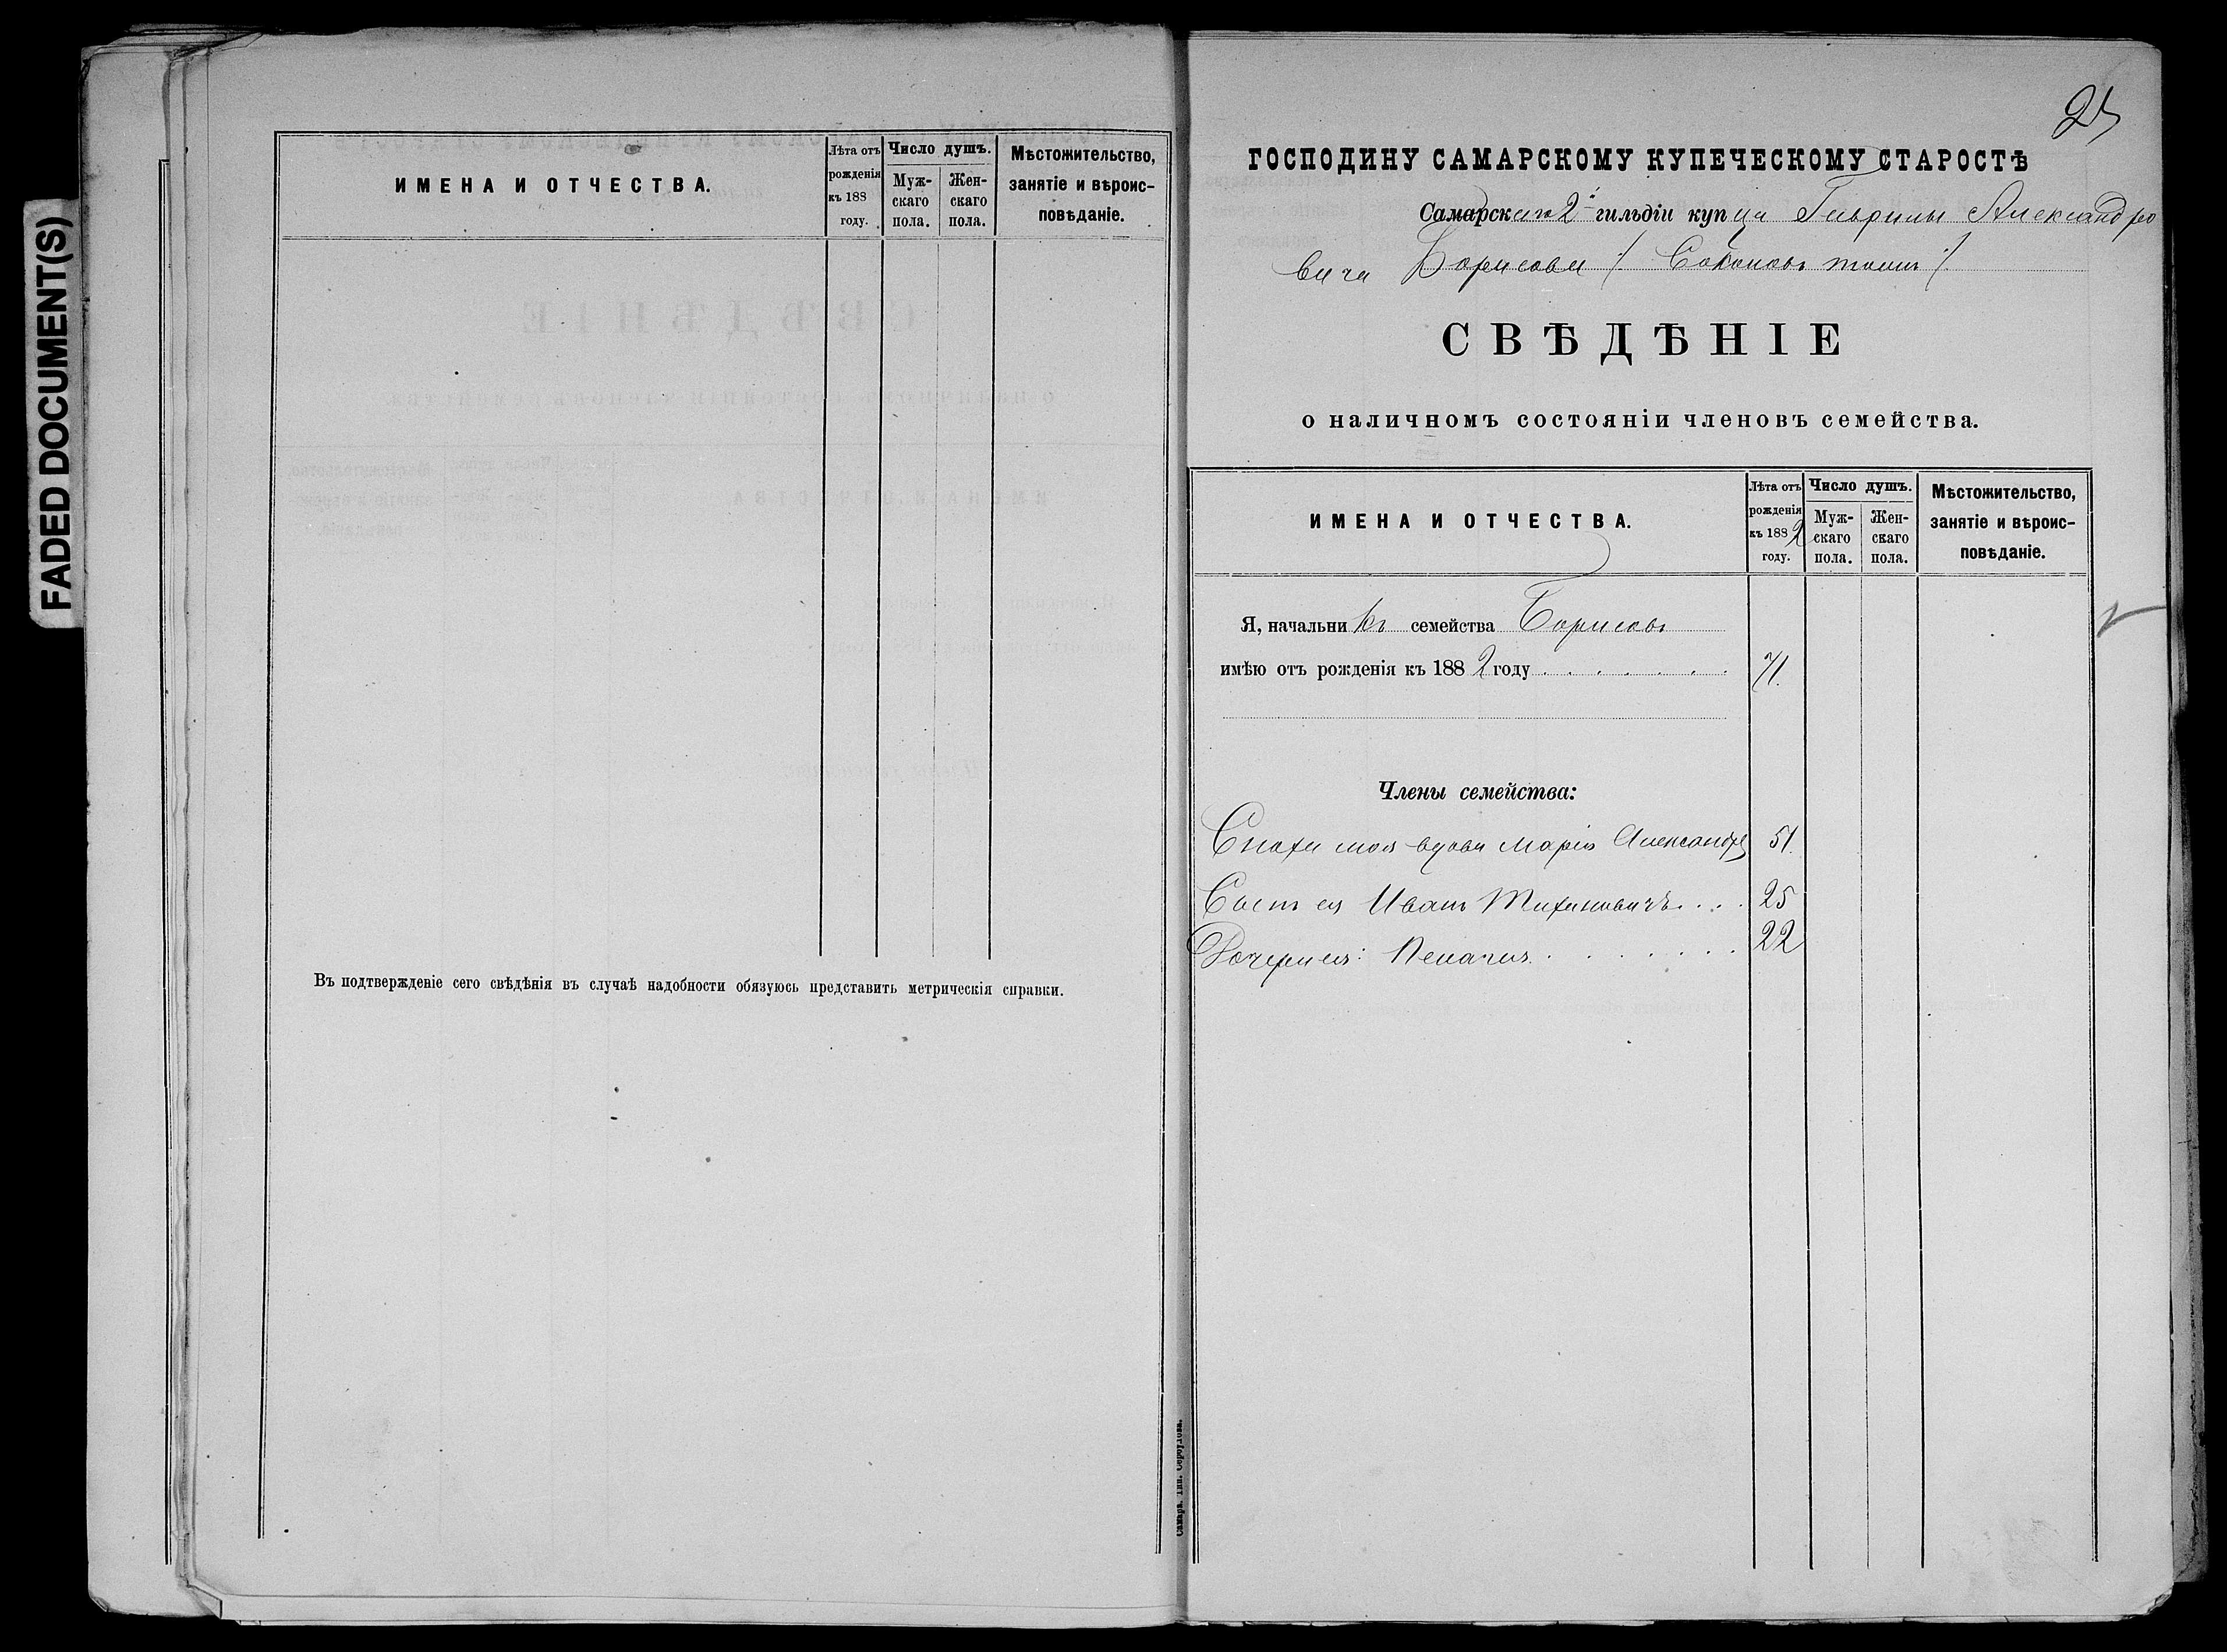 FADED DOCUMENT(S)
ИМЕНА И ОТЧЕСТВА.
Лѣта отъ рожденія къ 188 году.
Число душъ.
Мужскаго пола.
Женскаго пола.
Мѣстожительство, занятіе и вѣроисповѣданіе.
Въ подтвержденіе сего свѣдѣнія въ случаѣ надобности обязуюсь представить метрическія справки.
Самара. Тип.
25
ГОСПОДИНУ САМАРСКОМУ КУПЕЧЕСКОМУ СТАРОСТѢ
Самарскаго 2й гильдіи купца Гаврилы Александро
вича Борисова
СВѢДѢНІЕ
о наличномъ состояніи членовъ семейства.
ИМЕНА И ОТЧЕСТВА.
Лѣта отъ рожденія къ 1882 году.
Число душъ.
Мужскаго пола.
Женскаго пола.
Мѣстожительство, занятіе и вѣроисповѣданіе.
Я, начальникъ семейства Борисовъ
имѣю отъ рожденія къ 1882 году . . . . . . 71.
Члены семейства:
Сноха моя вдова Марія Александр 51.
Сынъ ея Иванъ Тихоновичъ. . . . 25
Дочь ея: Пелагия . . . . . . . 22